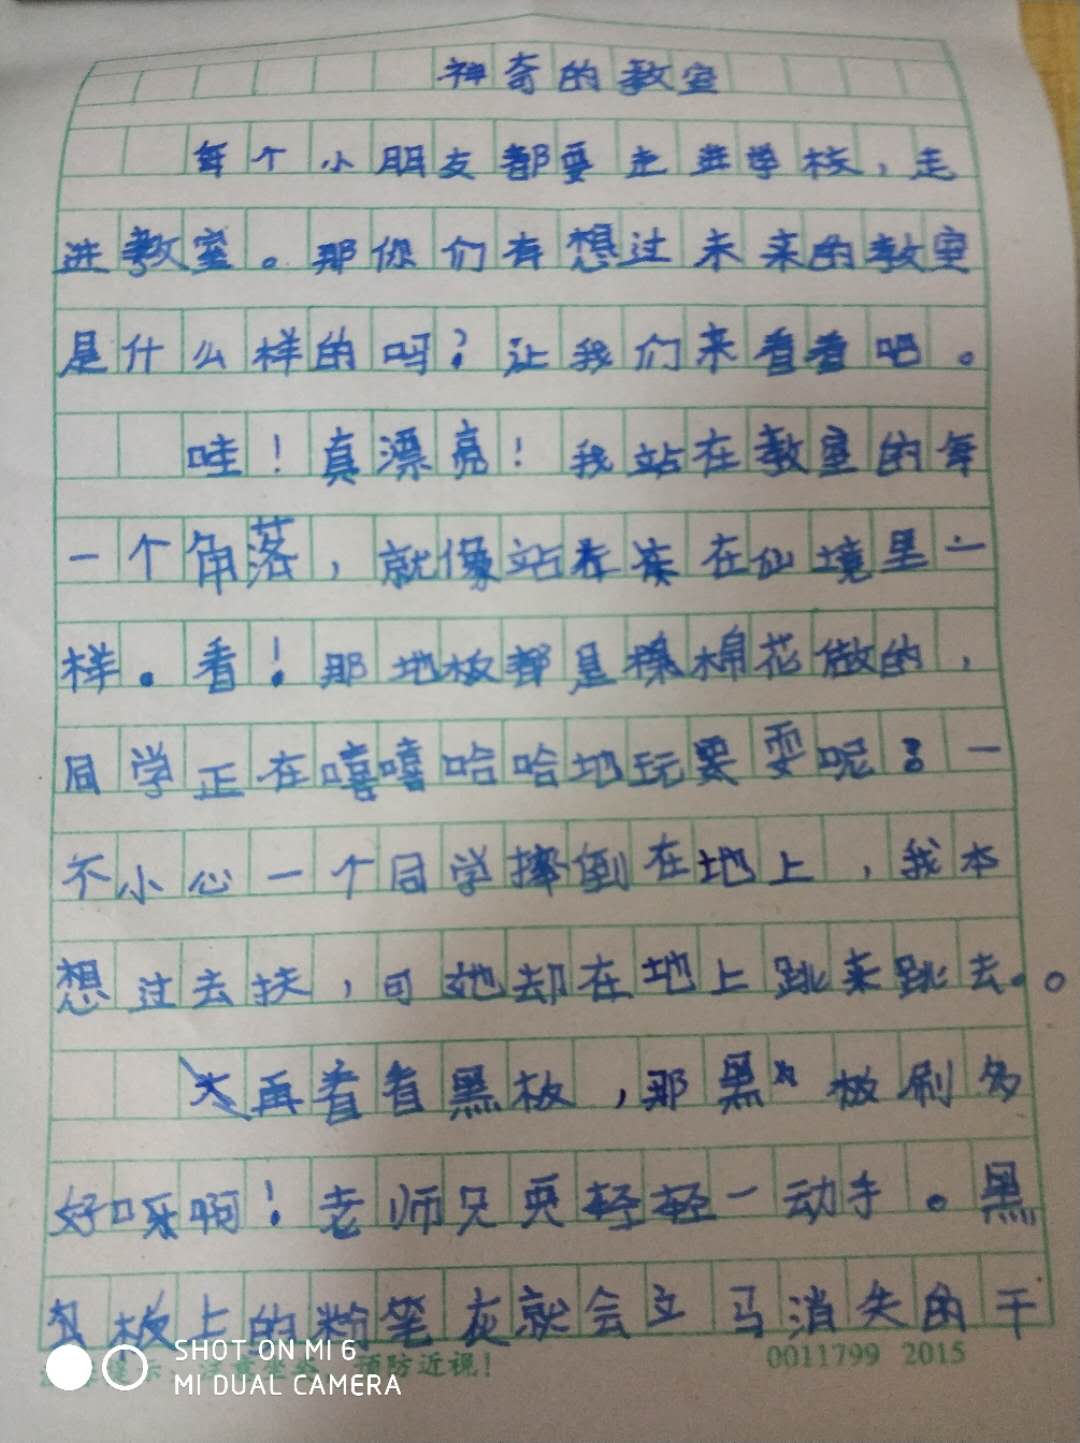 神奇的教室
每个小朋友都要走进学校，走
进教室。那你们有想过未来的教室
是什么样的吗？让我们来看看吧。
哇！真漂亮！我站在教室的每
一个角落，就像站在仙境里一
样。看！那地板都是棉花做的，
同学正在嘻嘻哈哈地玩耍呢！一
不小心一个同学摔倒在地上，我本
想过去扶，可她却在地上跳来跳去。
再看看黑板，那黑板刷多
好呀啊！老师只要轻轻一动手。黑
板上的粉笔灰就会立马消失的干
预防近视！
0011799 2015
SHOT ON MI 6
MI DUAL CAMERA